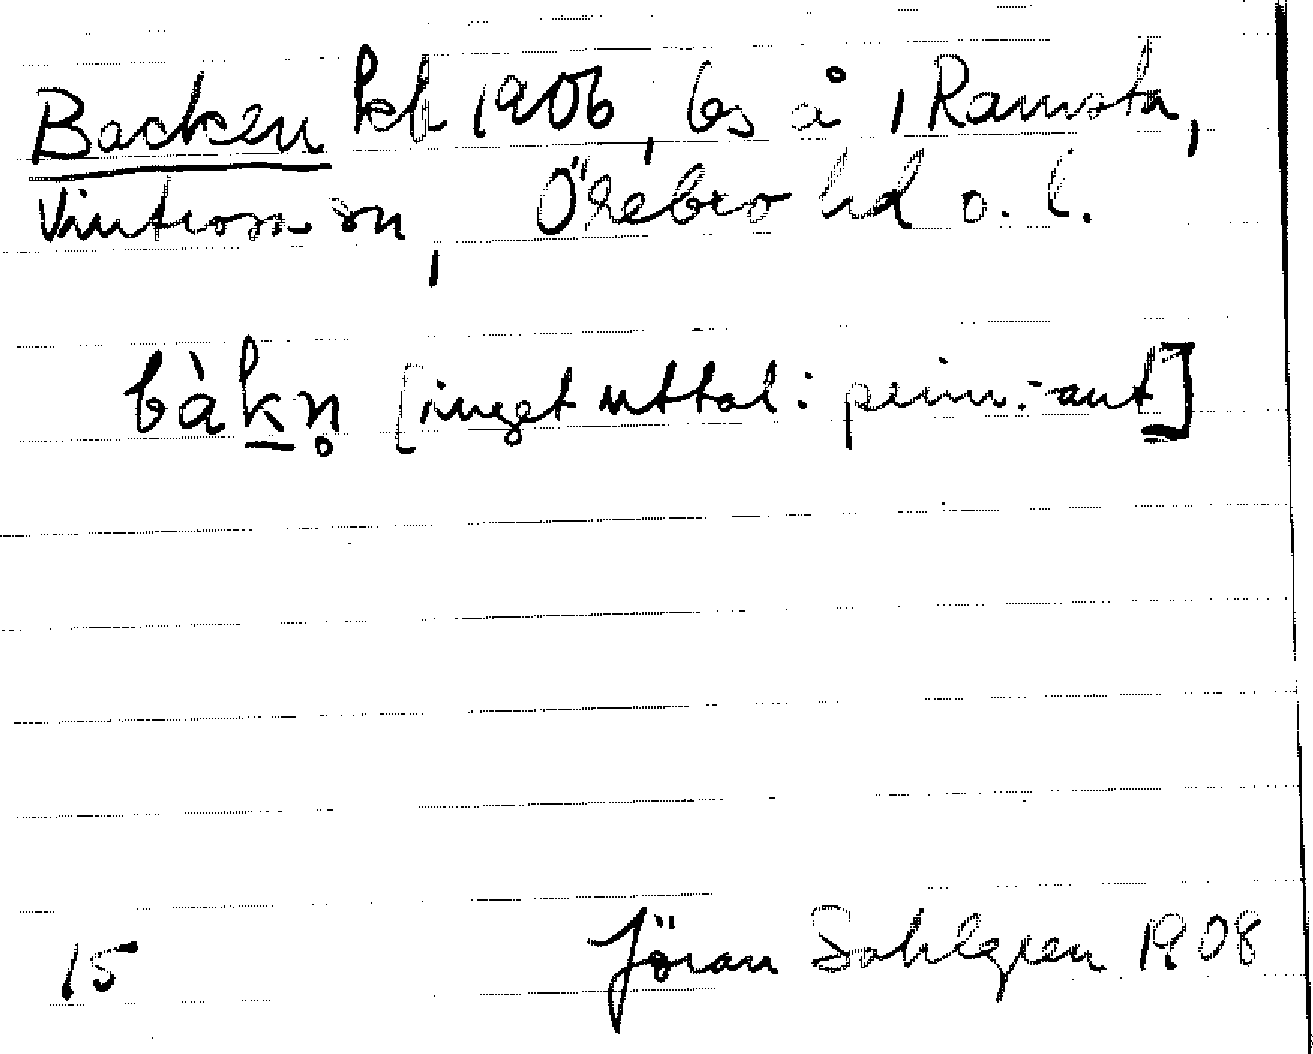 Backen kb 1906, bs å 1 Ramsta,
Vintrosa sn, Örebro hd o. l.
bàkn̥ [inget uttal: prim.-ant]
15 Jöran Sahlgren 1908